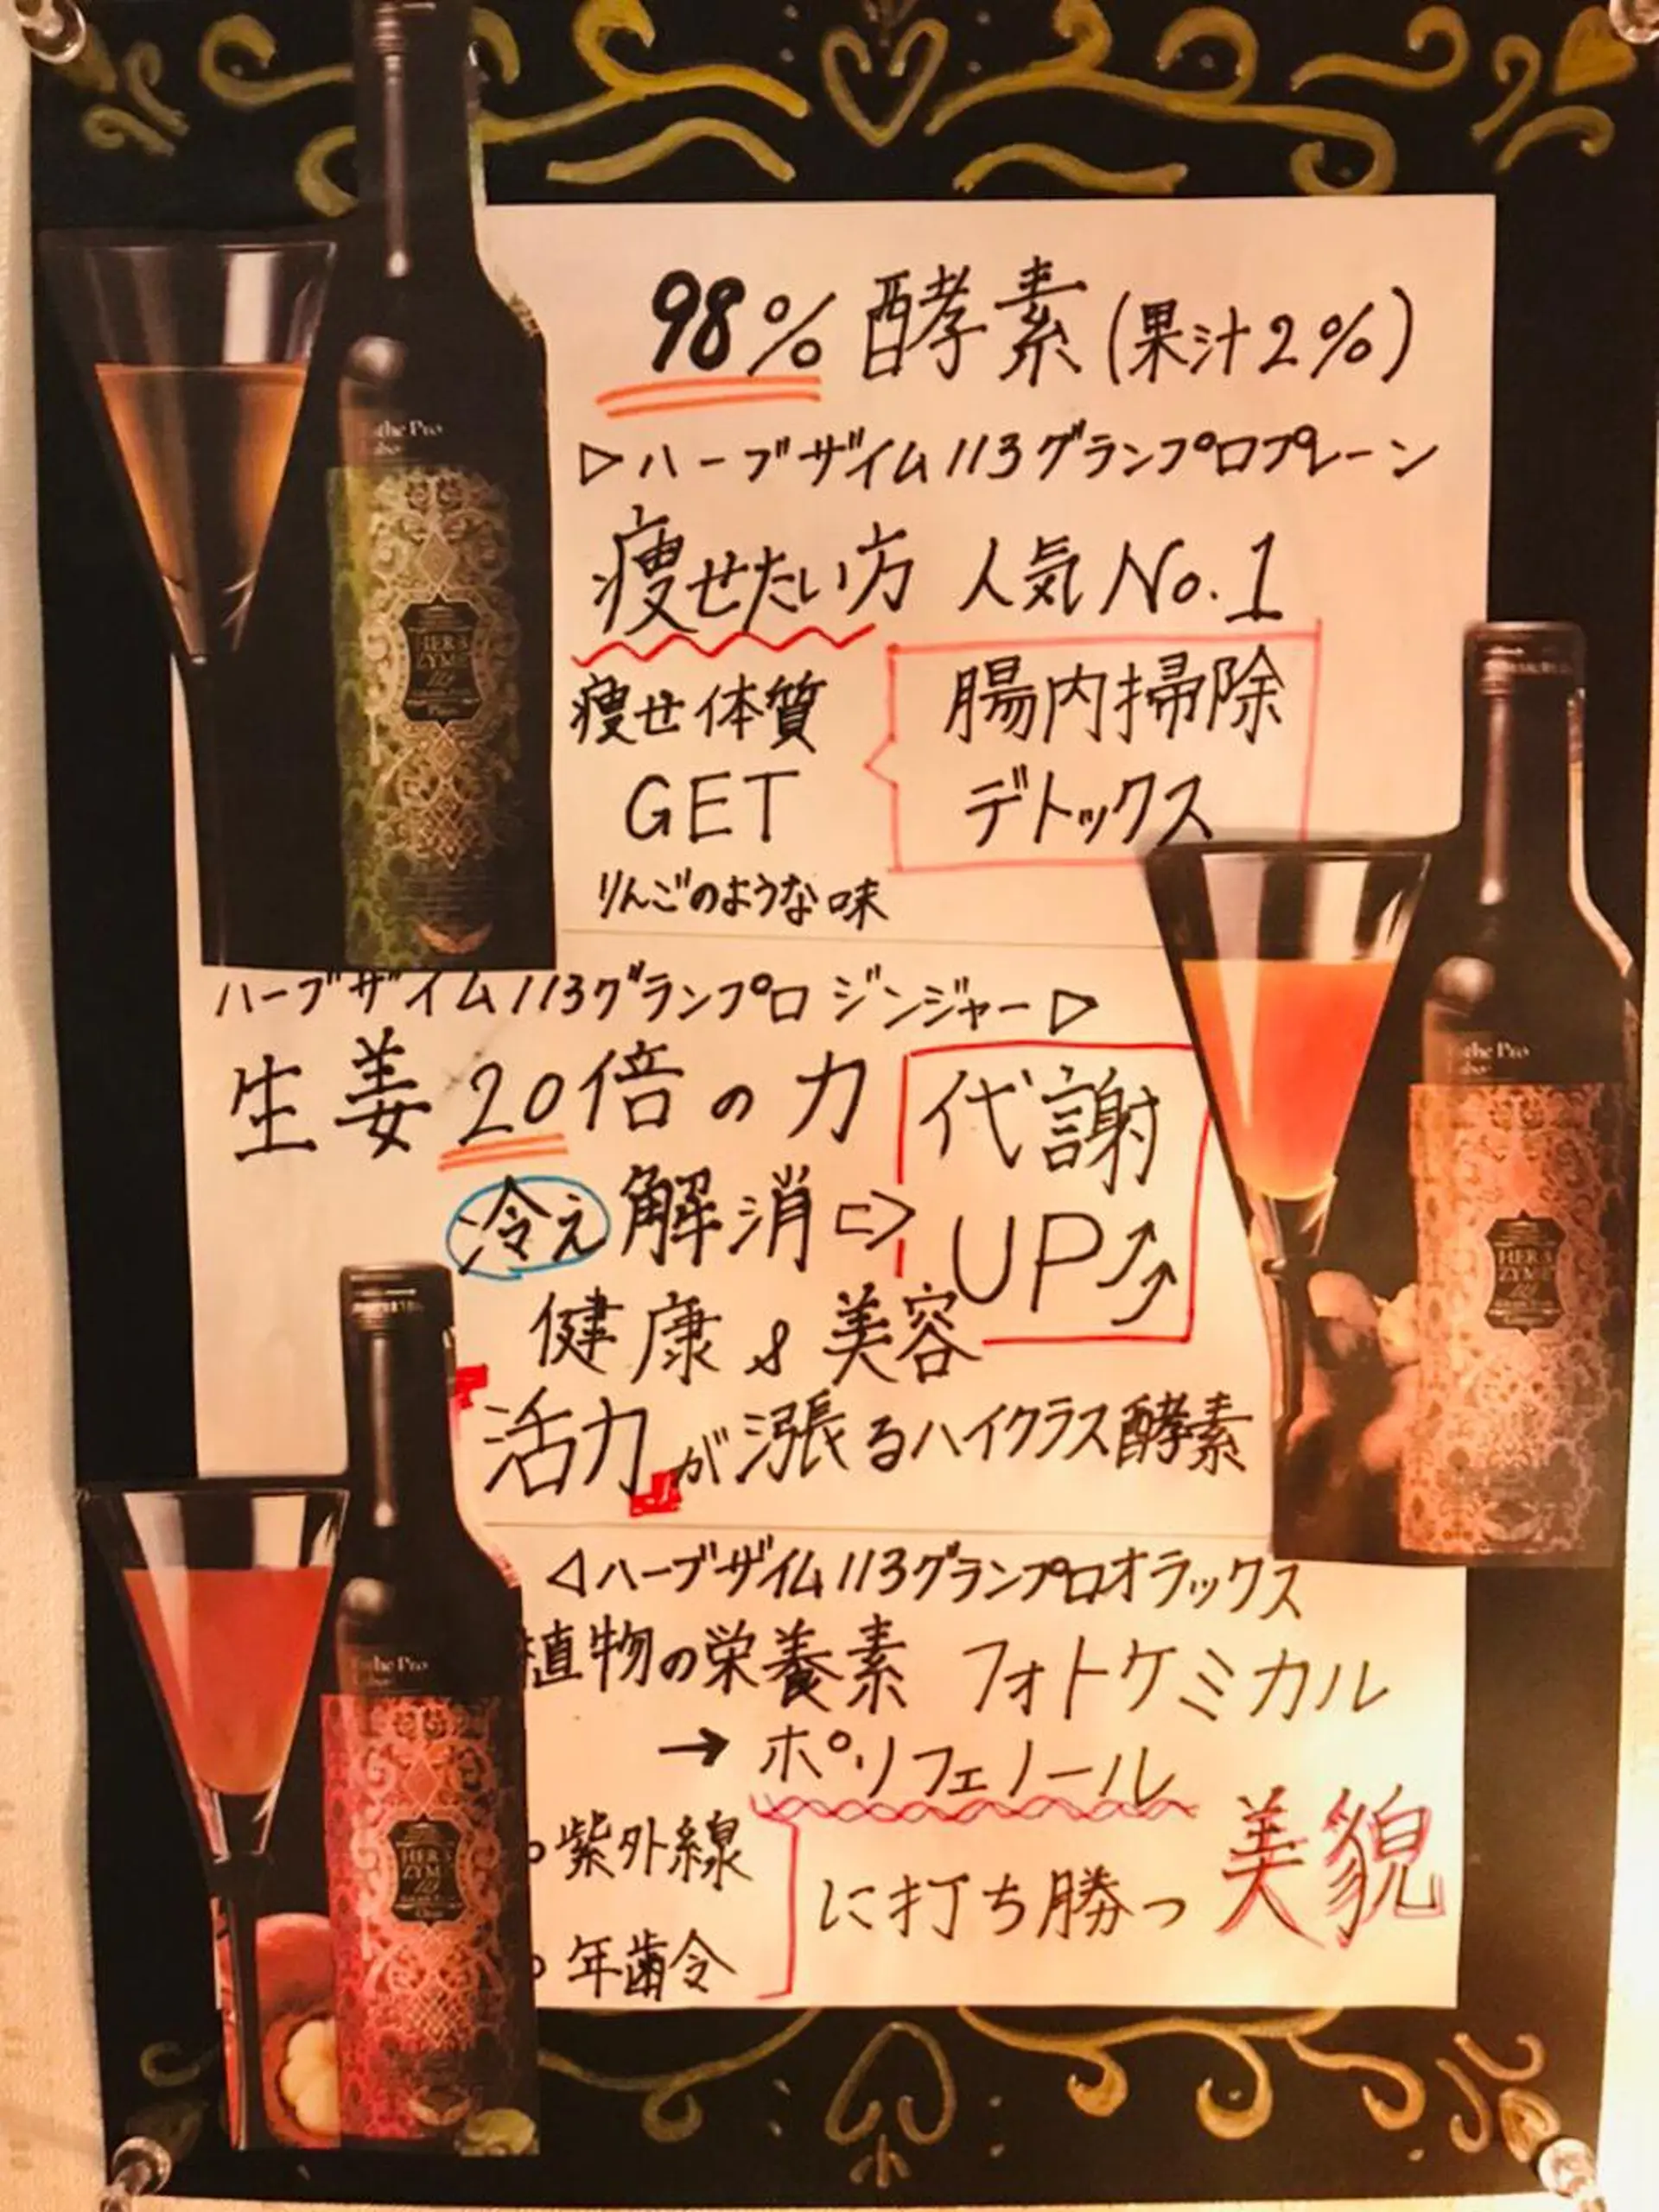 98% 酵素(果汁2%)
▷ハーブザイム113グランプロプレーン
痩せたい方 人気No.1
痩せ体質
GET
腸内掃除
デトックス
りんごのような味
ハーブザイム113グランプロ ジンジャー▷
生姜20倍の力
冷え解消⇨
代謝
UP
健康&美容
活力が漲るハイクラス酵素
◁ハーブザイム113グランプロオラックス
植物の栄養素 フォトケミカル
→ポリフェノール
紫外線
年齢
に打ち勝つ 美貌
HERB
ZYME
113
HERB
ZYME
113
HERB
ZYME
113